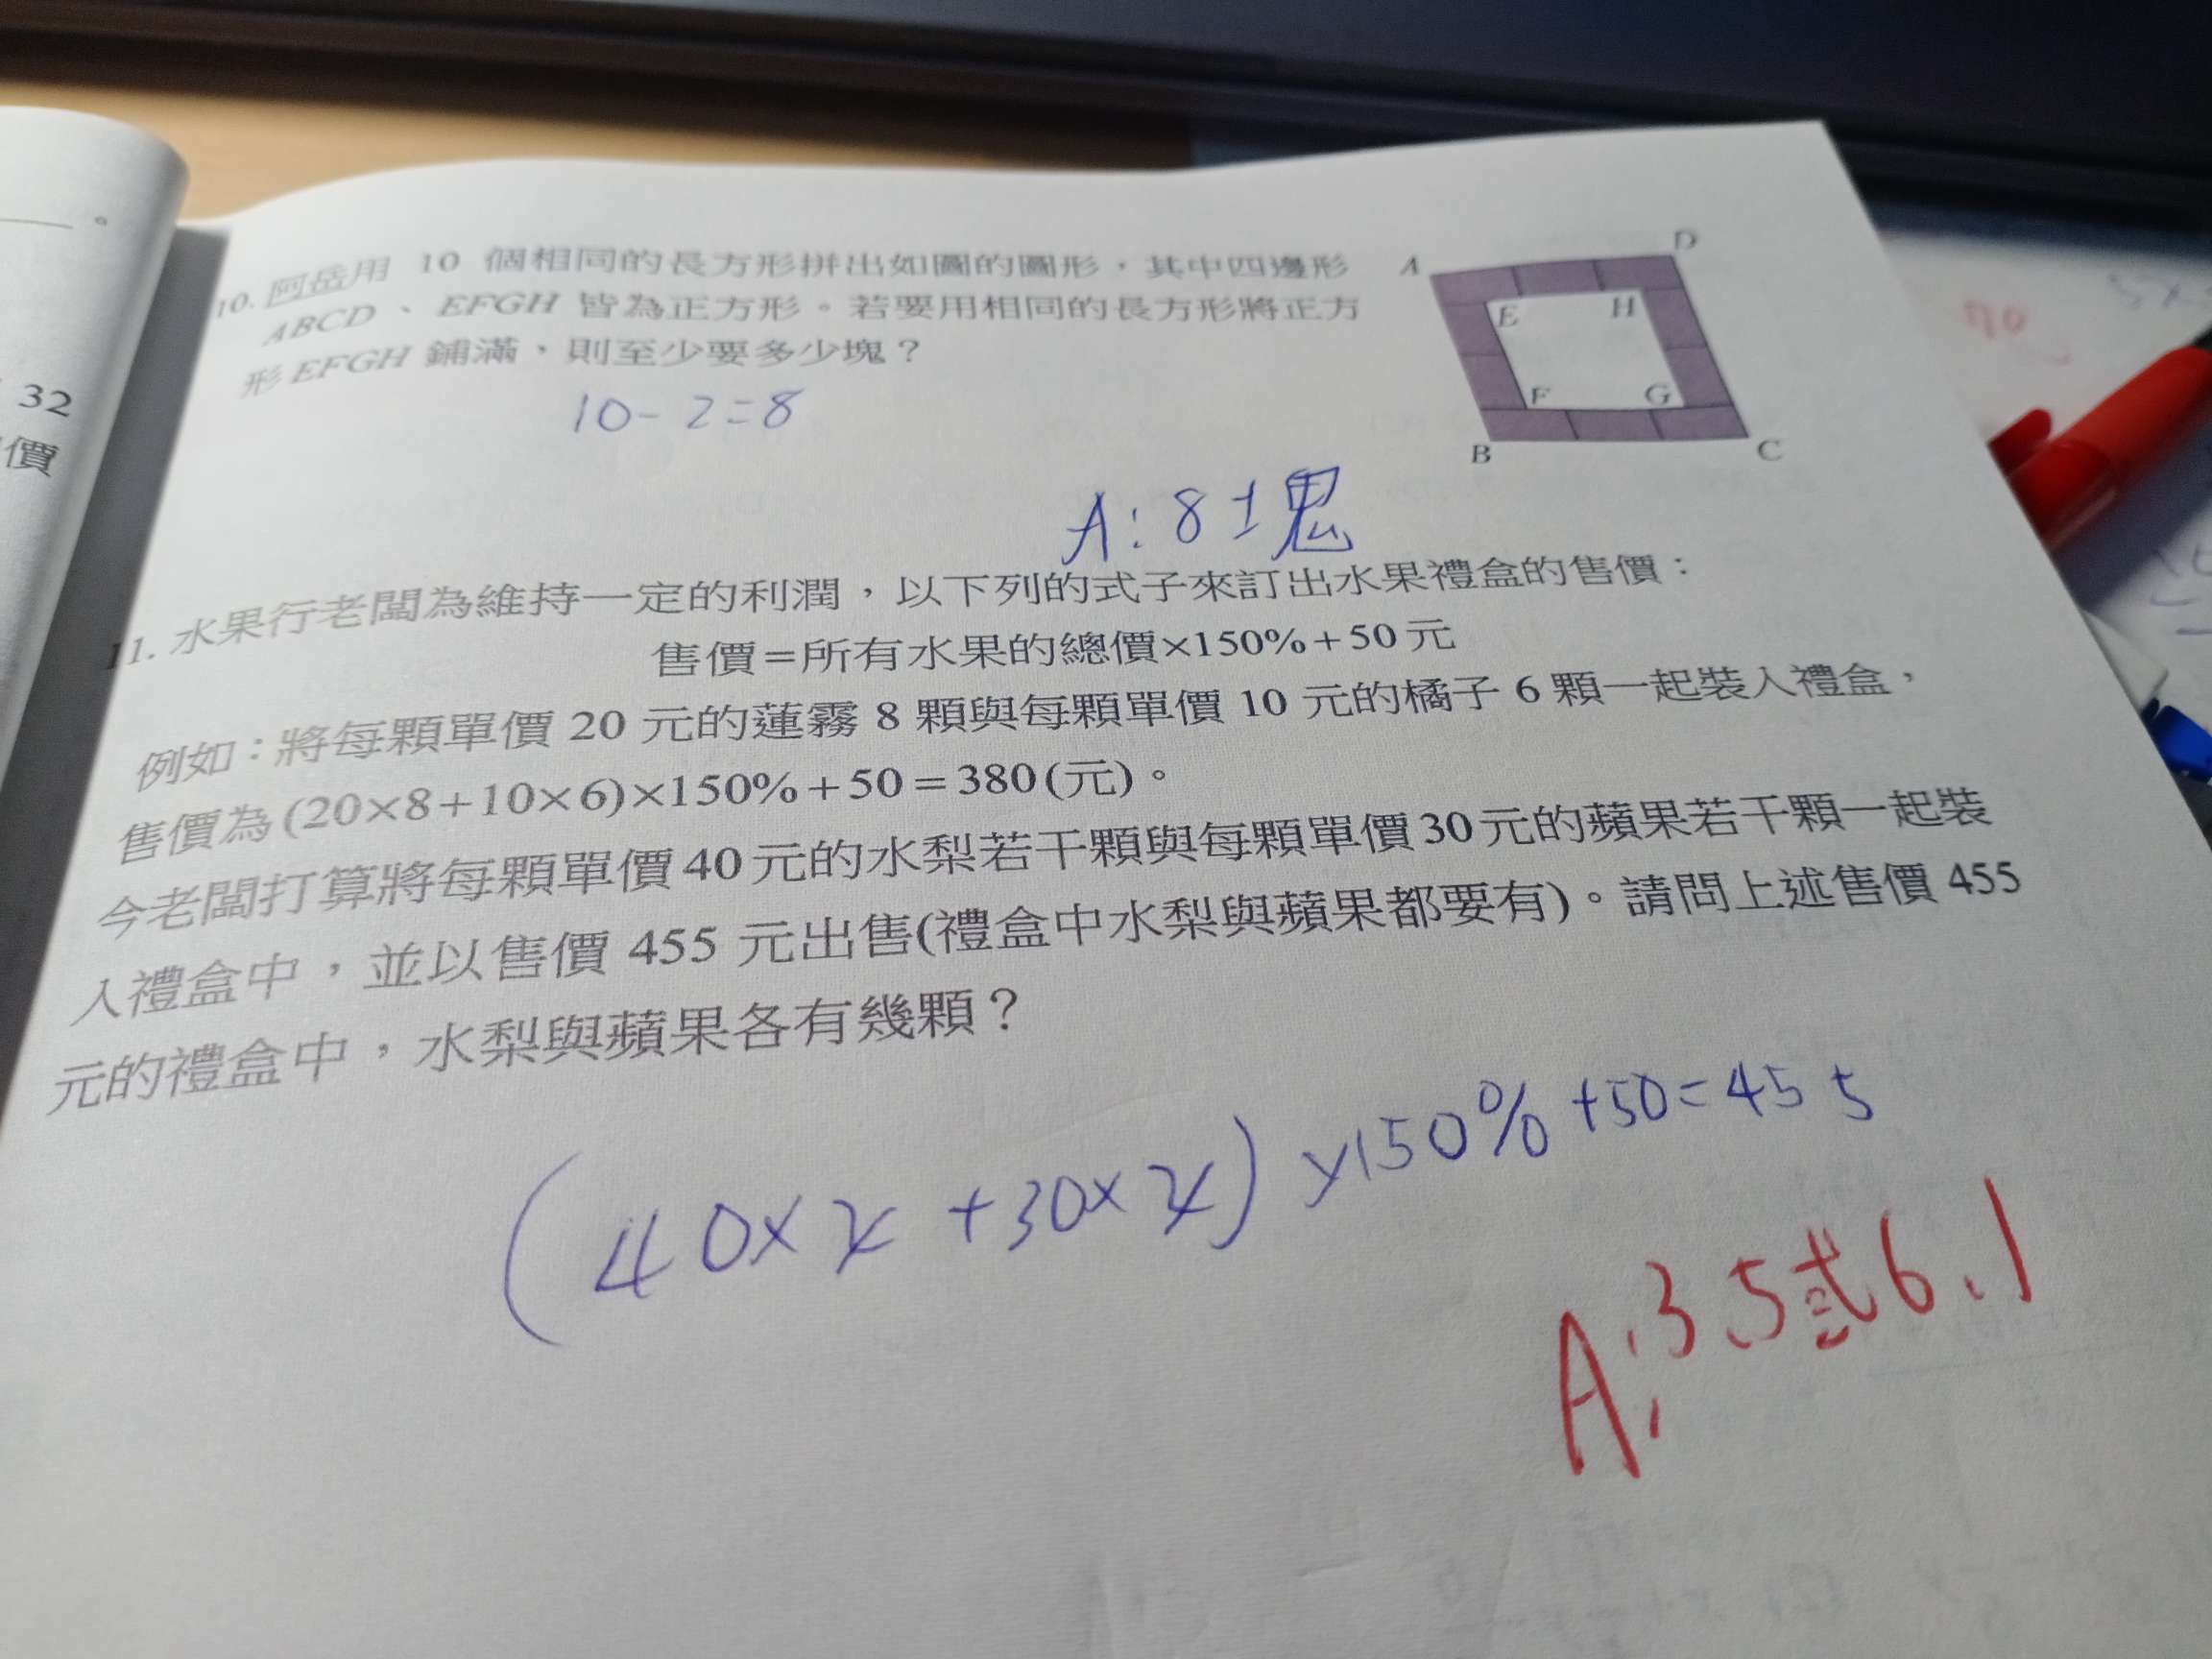 。
32
價
10. 阿岳用 10 個相同的長方形拼出如圖的圖形，其中四邊形
ABCD、EFGH 皆為正方形。若要用相同的長方形將正方
形 EFGH 鋪滿，則至少要多少塊？
A D
E H
F G
B C
10-2=8
A：8塊
11. 水果行老闆為維持一定的利潤，以下列的式子來訂出水果禮盒的售價：
售價＝所有水果的總價×150%＋50 元
例如：將每顆單價 20 元的蓮霧 8 顆與每顆單價 10 元的橘子 6 顆一起裝入禮盒，
售價為 (20×8＋10×6)×150%＋50＝380(元)。
今老闆打算將每顆單價 40 元的水梨若干顆與每顆單價 30 元的蘋果若干顆一起裝
入禮盒中，並以售價 455 元出售(禮盒中水梨與蘋果都要有)。請問上述售價 455
元的禮盒中，水梨與蘋果各有幾顆？
(40×x+30×x)×150%+50=455
A：3、5或6、1
90